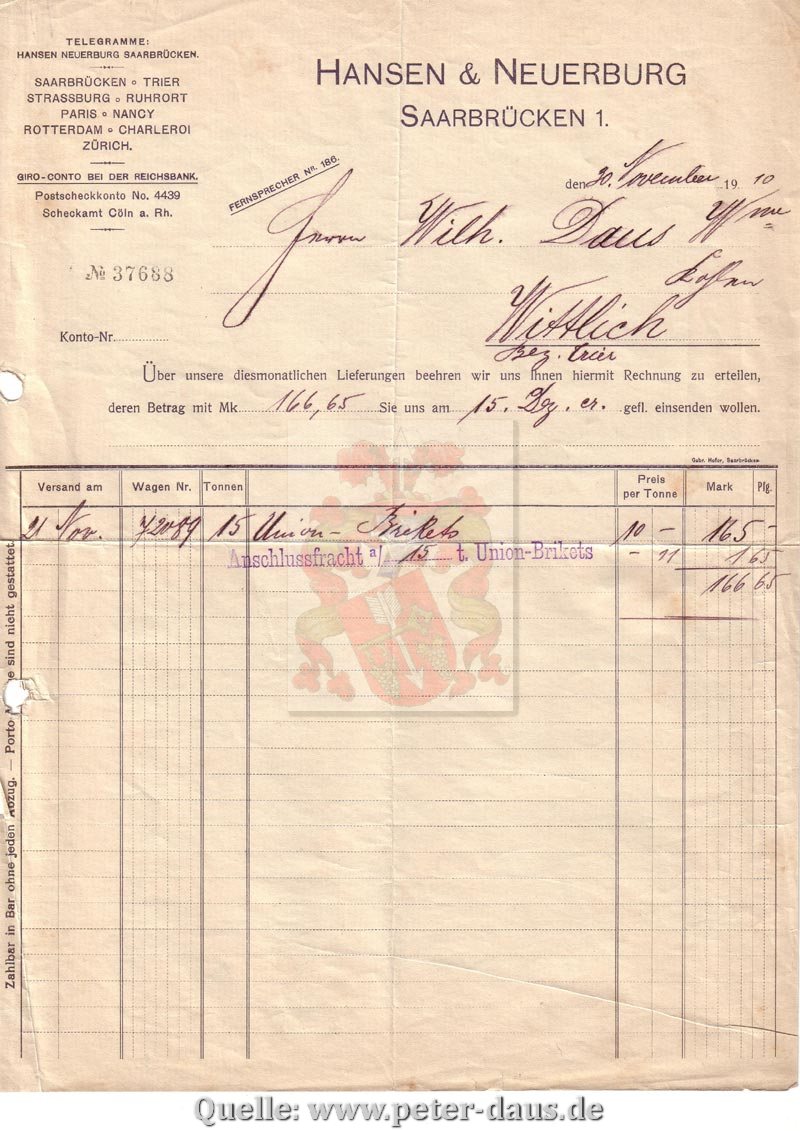 TELEGRAMME:
HANSEN NEUERBURG SAARBRÜCKEN.
SAARBRÜCKEN ∘ TRIER
STRASSBURG ∘ RUHRORT
PARIS ∘ NANCY
ROTTERDAM ∘ CHARLEROI
ZÜRICH.
GIRO-CONTO BEI DER REICHSBANK.
Postscheckkonto No. 4439
Scheckamt Cöln a. Rh.
HANSEN & NEUERBURG
SAARBRÜCKEN 1.
FERNSPRECHER Nr. 186.
den 30. November 1910
Herrn Wilh. Daus Wwe
Kohlen
№ 37688
Wittlich
Bez. Trier
Konto-Nr.
Über unsere diesmonatlichen Lieferungen beehren wir uns Ihnen hiermit Rechnung zu erteilen,
deren Betrag mit Mk. 166,65 Sie uns am 15. Dez. cr. gefl. einsenden wollen.
Gebr. Hofer, Saarbrücken
Versand am Wagen Nr. Tonnen Preis per Tonne Mark Pfg.
21 Nov. 72089 15 Union-Brikets 165 -
Anschlussfracht a/ 15 t. Union-Brikets - 11 1 65
166 65
Zahlbar in Bar ohne jeden Abzug. — Porto sind nicht gestattet.
Quelle: www.peter-daus.de